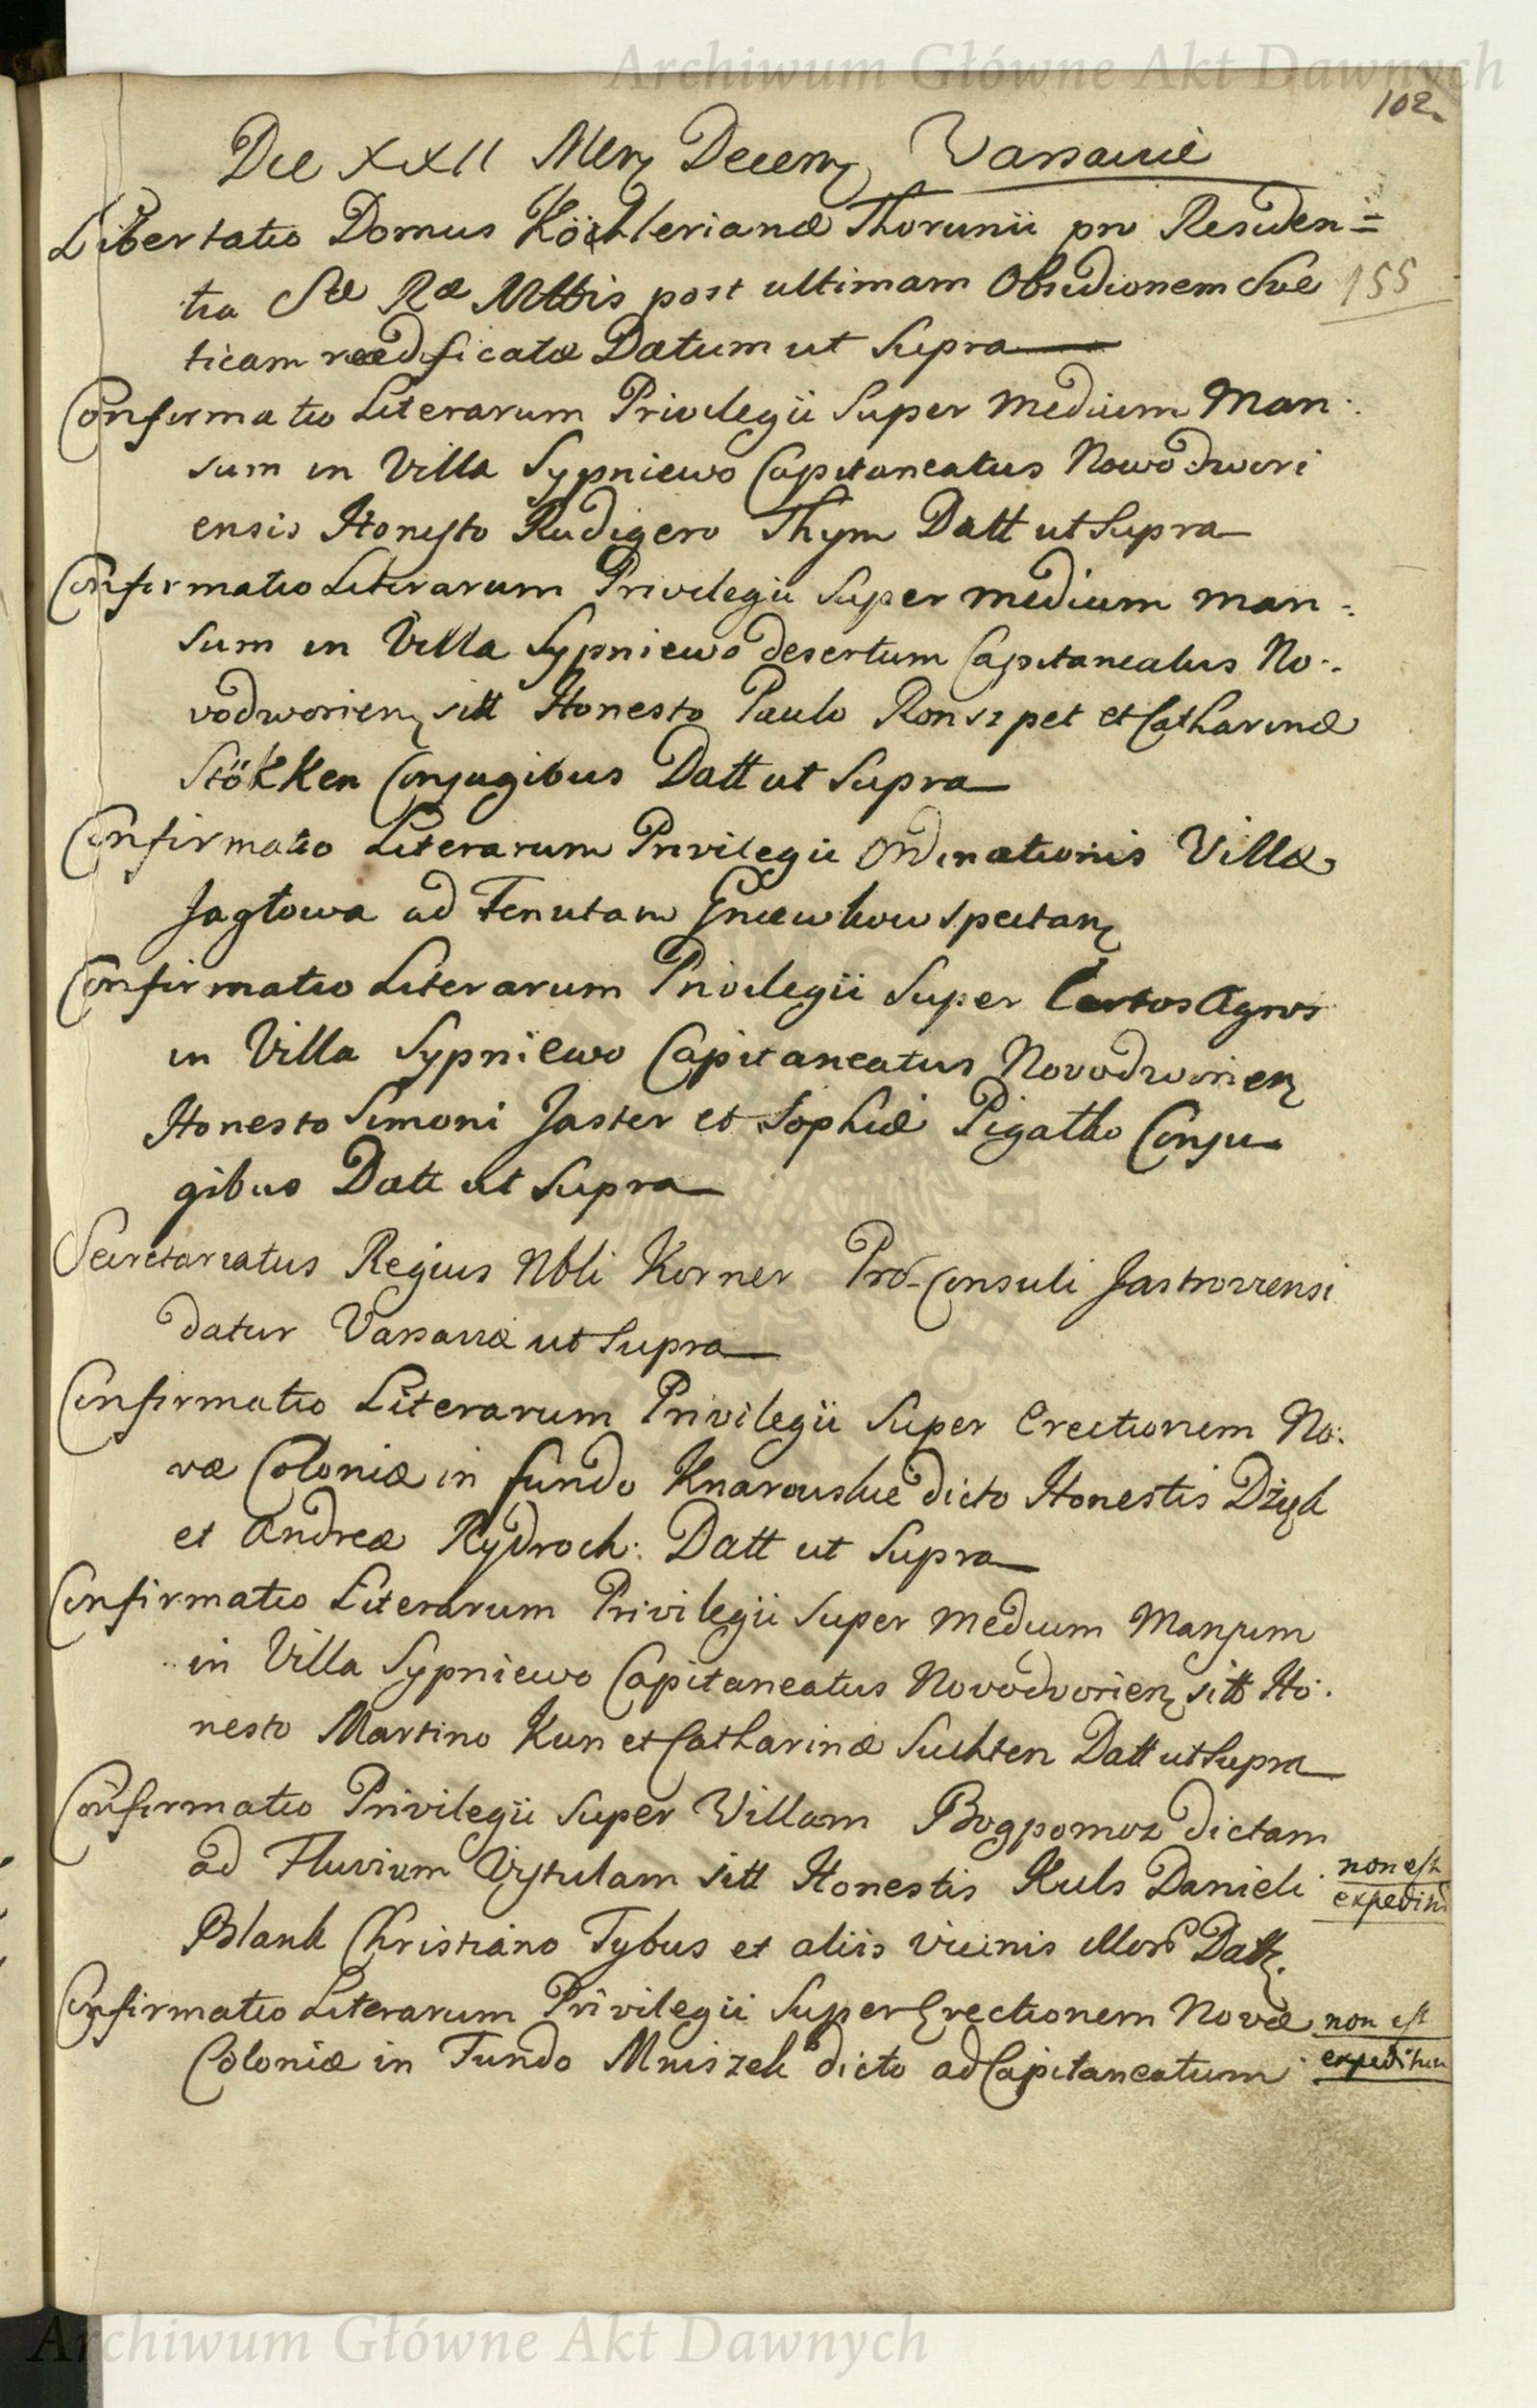 Archiwum Główne Akt Dawnych
102
Die XXII Men Decem Varsaviæ
Libertatio Domus Köhlerianæ Thorunii pro Residen=
tia Sæ Ræ Mttis post ultimam Obsidionem Sue
155
ticam reædificatæ Datum ut Supra
Confirmatio Literarum Privilegii Super medium Man:
sum in Villa Sypniewo Capitaneatus Nowodwori
ensis Honesto Rudigero Thym Datt ut Supra
Confirmatio Literarum Privilegii Super medium man:
sum in Villa Sypniewo desertum Capitaneatus No:
vodworien sitt Honesto Paulo Ronszpet et Catharinæ
Stökken Conjugibus Datt ut Supra
Confirmatio Literarum Privilegii Ordinationis Villæ
Jagłowa ad Tenutam Gniewkow spectan
Confirmatio Literarum Privilegii Super Certos Agros
in Villa Sypniewo Capitaneatus Novodworien
Honesto Simoni Jaster et Sophiæ Pigatko Conju
gibus Datt ut Supra
Secretariatus Regius Nbli Korner Pro-Consuli Jastroviensi
datur Varsaviæ ut Supra
Confirmatio Literarum Privilegii Super Erectionem No:
væ Coloniæ in fundo dicto Honestis
et Andreæ Rydroch: Datt ut Supra
Confirmatio Literarum Privilegii Super medium Mansum
in Villa Sypniewo Capitaneatus Novodvorien sitt Ho:
nesto Martino Kun et Catharinæ Suchten Datt ut Supra
Confirmatio Privilegii Super Villam Bogpomoz dictam
ad Fluvium Vistulam sitt Honestis Kuls Danieli
non est
expeditu
Blank Christiano Tybus et aliis vicinis illor Datt
Confirmatio Literarum Privilegii Super Erectionem Novæ
non est
Coloniæ in Fundo Mniszek dicto ad Capitaneatum
expeditum
Archiwum Główne Akt Dawnych